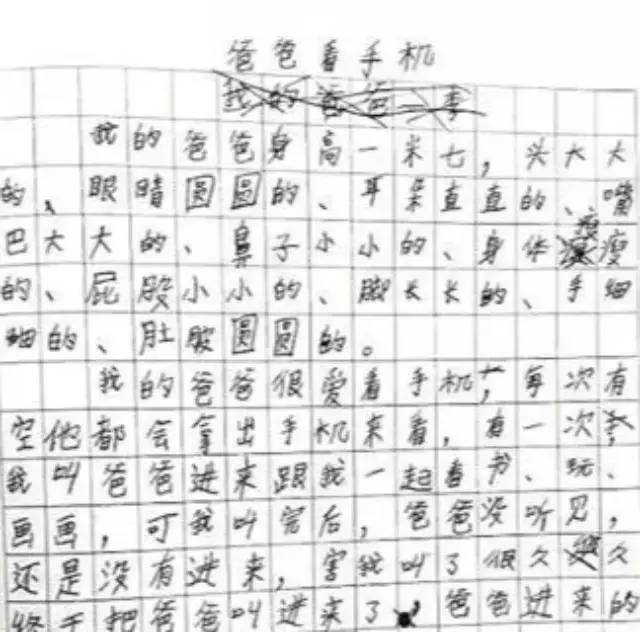 爸爸看手机
我的爸爸
我的爸爸身高一米七，头大大
的、眼睛圆圆的、耳朵直直的、嘴
巴大大的、鼻子小小的、身体瘦瘦
的、屁股小小的、脚长长的、手细
细的、肚皮圆圆的。
我的爸爸很爱看手机，每次有
空他都会拿出手机来看，有一次，
我叫爸爸进来跟我一起看书、玩、
画画，可我叫完后，爸爸没听见，
还是没有进来，害我叫了很久久
终于把爸爸叫进来了，爸爸进来的